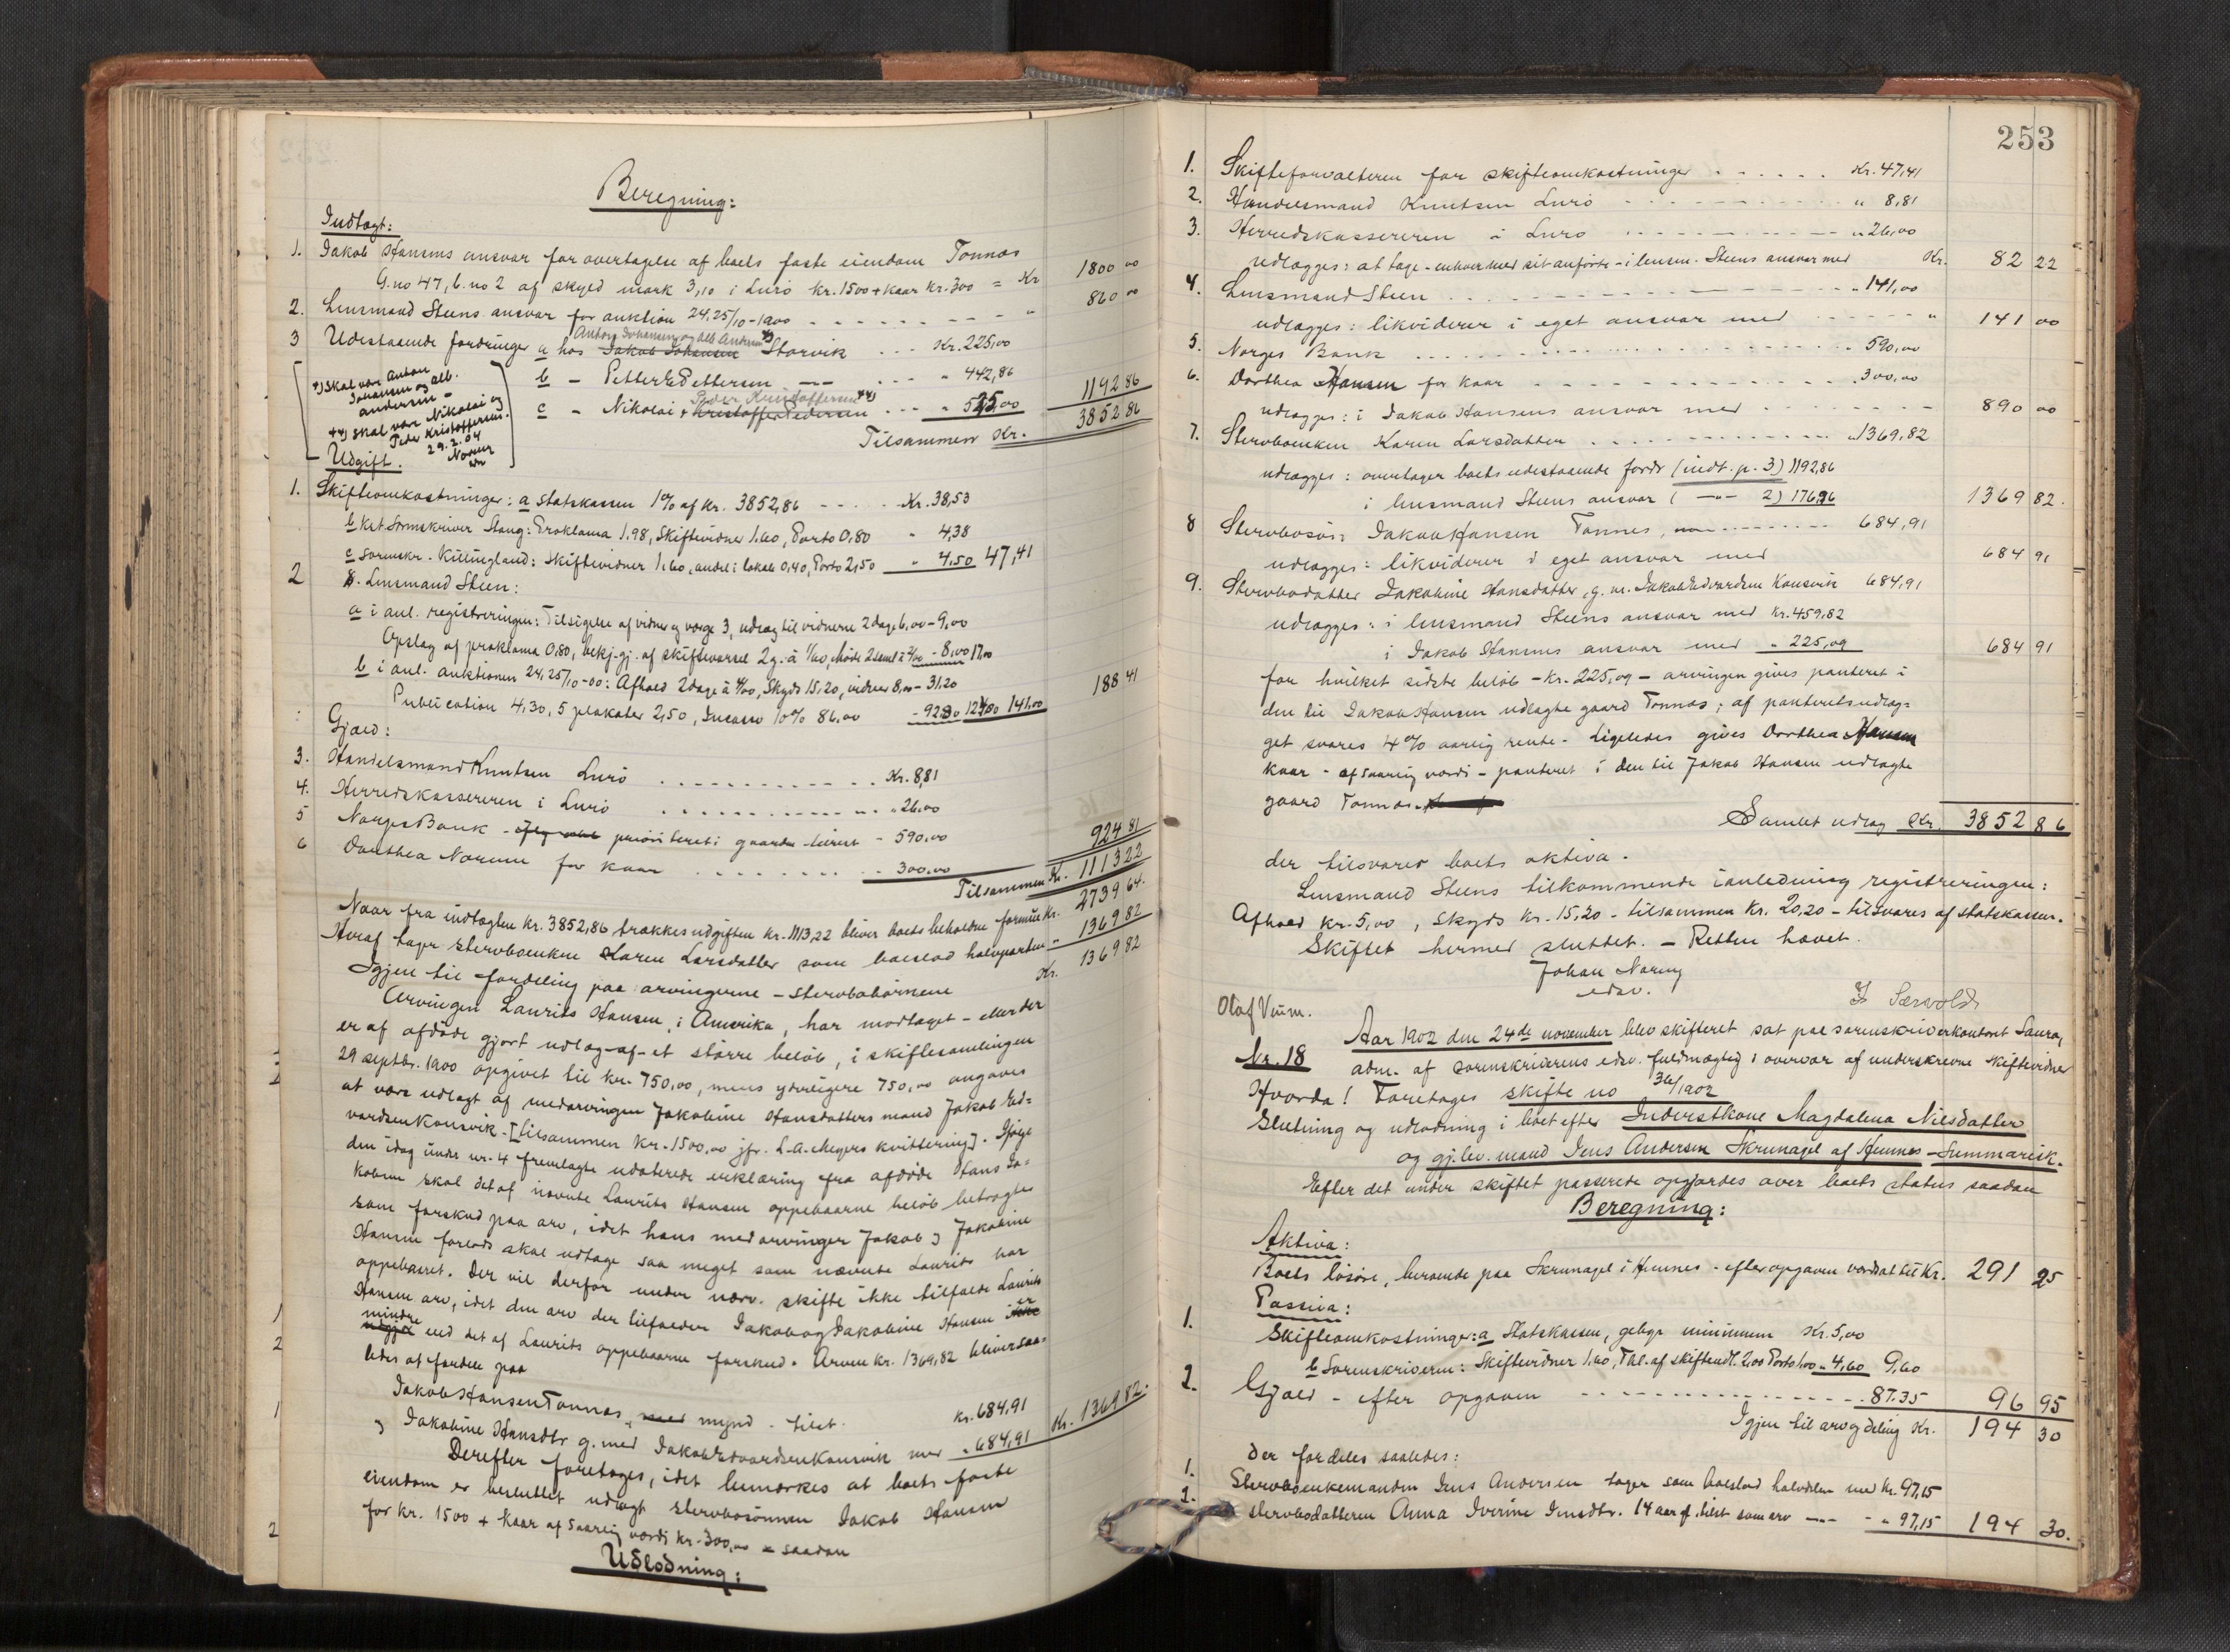 Beregning:
Indtægt:
1. Jakob Hansens ansvar for overtagelse af boets faste eiendom Tonnes
G. no 47, b. no 2 af skyld mark 3,10 i Lurö kr. 1500 + kaar kr. 300 = Kr 1800 00
2. Lensmand Steens ansvar for auktion 24, 25/10 - 1900 . . . . . . . - - " 860 00
Anton Johansen og Alb Andersen *)
3 Udestaaende fordringer a hos Jakob Johansen Storvik . . . Kr. 225,00
b - Petter E Pettersen - - - . . . " 442,86
Peder Kristoffersen **)
c - Nikolai + Kristoffer Pedersen . . . " 525,00 1192 86
Tilsammen Kr. 3852 86
*) Skal være Anton
Johansen og Alb.
Andersen -
**) skal være Nikolai og
Peder Kristoffersen.
29.2.04
Udgift.
1. Skifteomkostninger: a Statskassen 1% af Kr. 3852,86 - - . . Kr. 38,53
b Kst. Sorenskriver Stang: Proklama 1.98, Skiftevidner 1.60, Porto 0,80 " 4,38
c Sorenskr. Killingland: Skiftevidner 1,60, andel i lokale 0,40, Porto 2,50 " 4,50 47,41
2 Lensmand Steen:
a i anl. registreringen: Tilsigelse af vidner og værge 3, udlæg til vidnerne 2 dage 6,00 - 9,00
Opslag af proklama 0,80, bekj.gj. af skiftevarsel 2 g. à 1/60, Möde 2 saml. à 2/00 - 8,00 17,00
b i anl. auktionen 24, 25/10 - 00: Afhold 2 dage à 4/00, Skyds 15,20, vidner 8,00 - 31,20
Publication 4,30, 5 plakater 2,50, Incasso 10% 86,00 - 92,80 124,00 141,00 188 41
Gjæld:
3. Handelsmand Knutsen Lurö . . . . . . . . . . Kr. 8,81
4. Herredskassereren i Lurö . . . . . . . . . . " 26,00
5 Norges Bank - prioriteret i gaarden - 590,00
6 Dorthea Norum for kaar . . . . . . . . 300,00 924 81
Tilsammen Kr. 1113 22
Naar fra indtægten kr. 3852,86 trækkes udgiften kr. 1113,22 bliver boets beholdne formue Kr. 2739 64.
Heraf tager stervboenken Karen Larsdatter som boeslod halvparten - " 1369 82
Igjen til fordeling paa arvingerne - stervbobörnene Kr. 1369 82
Arvingen Laurits Hansen, i Amerika, har modtaget - eller der
er af afdöde gjort udlæg - af - et större belöb, i skiftesamlingen
29 septbr. 1900 opgivet til kr. 750,00, mens yderligere 750,00 angaves
at være udlagt af medarvingen Jakobine Hansdatters mand Jakob Ed=
vardsen Konsvik. - [tilsammen kr. 1500,00 jfr. L. A. Meyers kvittering]. Ifölge
den idag under nr. 4 fremlagte udaterede erklæring fra afdöde Hans Ja=
kobsen skal det af nævnte Laurits Hansen oppebaarne belöb betragtes
som forskud paa arv, idet hans medarvinger Jakob og Jakobine
Hansen forlods skal udtage saa meget som nævnte Laurits har
oppebaaret. Der vil derfor under nærv. skifte ikke tilfalde Laurits
Hansen arv, idet den arv der tilfalder Jakob og Jakobine Hansen er
mindre end det af Laurits oppebaarne forskud. Arven kr. 1369,82 bliver saa=
ledes at fordele paa
Jakob Hansen Tonnes, mynd. - tilst. kr. 684,91
og Jakobine Hansdtr g. med Jakob Edvardsen Konsvik med " 684,91 Kr. 1369 82.
Derefter foretages, idet bemærkes at boets faste
eiendom er besluttet udlagt stervbosönnen Jakob Hansen
for kr. 1500 + kaar af 5aarlig værdi kr. 300,00 saadan
Udlodning:
253
1. Skifteforvalteren for skifteomkostninger . . . . . . Kr. 47,41
2. Handelsmand Knutsen Lurö - - - . . . . . . . " 8,81
3. Herredskassereren i Lurö . . . . - - - - - " 26,00
udlægges: at tage - enhver med sit anförte - i lensm. Steens ansvar med Kr. 82 22
4. Lensmand Steen . . . . . . . . . . " 141,00
udlægges: likviderer i eget ansvar med - - - - - " 141 00
5. Norges Bank . . . . . . . . . . . 590,00
6. Dorthea Hansen for kaar - - - - - - - . 300,00
udlægges: i Jakob Hansens ansvar med - - - - - - 890 00
7. Stervboenken Karen Larsdatter . . . . . . . . " 1369,82
udlægges: overtager boets udestaaende fordr (indt. p. 3) 1192,86
i lensmand Steens ansvar ( -"- 2) 176,96 1369 82.
8 Stervbosön: Jakob Hansen Tonnes, . . . . . . 684,91
udlægges: likviderer i eget ansvar med 684 91
9. Stervbodatter Jakobine Hansdatter, g. m. Jakob Edvardsen Konsvik 684,91
udlægges: i lensmand Steens ansvar med kr. 459,82
i Jakob Hansens ansvar med " 225,09 684 91
for hvilket sidste belöb - kr. 225,09 - arvingen gives panteret i
den til Jakob Hansen udlagte gaard Tonnes; af panteretsudlæg=
get svares 4% aarlig rente. - Ligeledes gives Dorthea Hansen
kaar - af 5aarig værdi - panteret i den til Jakob Hansen udlagte
gaard Tonnes.
Samlet udlæg Kr. 3852 86
der tilsvarer boets aktiva.
Lensmand Steens tilkommende i anledning registreringen:
Afhold kr. 5,00, Skyds kr. 15,20 - tilsammen kr. 20,20 - tilsvares af statskassen.
Skiftet hermed sluttet. - Retten hævet.
Johan Noreng
edsv.
Olaf Viim.
Aar 1902 den 24de november blev skifteret sat paa sorenskriverkontoret
Nr. 18 adm. af sorenskriverens edsv. fuldmægtig i overvær af underskrevne skiftevidner
Hvorda! Foretoges skifte no 36/1902
Slutning og udlodning i boet efter Inderstkone Magdalena Nilsdatter
og gj. lev. mand Jens Andersen Skrunagel af Hemnes - Summarisk.
Efter det under skiftet passerede opgjordes over boets status saadan
Beregning:
Aktiva:
Boets lösöre, beroende paa Skrunagel i Hemnes - efter opgaven værdsat til Kr. 291 25
Passiva:
1. Skifteomkostninger: a Statskassen, gebyr minimum Kr. 5,00
b Sorenskriveren: Skiftevidner 1,60, Tkl. af skifteudl. 2,00 Porto 1,00 " 4,60 9,60
2. Gjæld - efter opgaven - - - - - - - - 87.35 96 95
Igjen til arv og deling Kr. 194 30
der fordeles saaledes:
1. Stervboenkemanden Jens Andersen tager som boeslod halvdelen med kr. 97,15
2. stervbodatteren Anna Iverine Jensdtr. 14 aar gl. tilst som arv - - " 97,15 194 30.